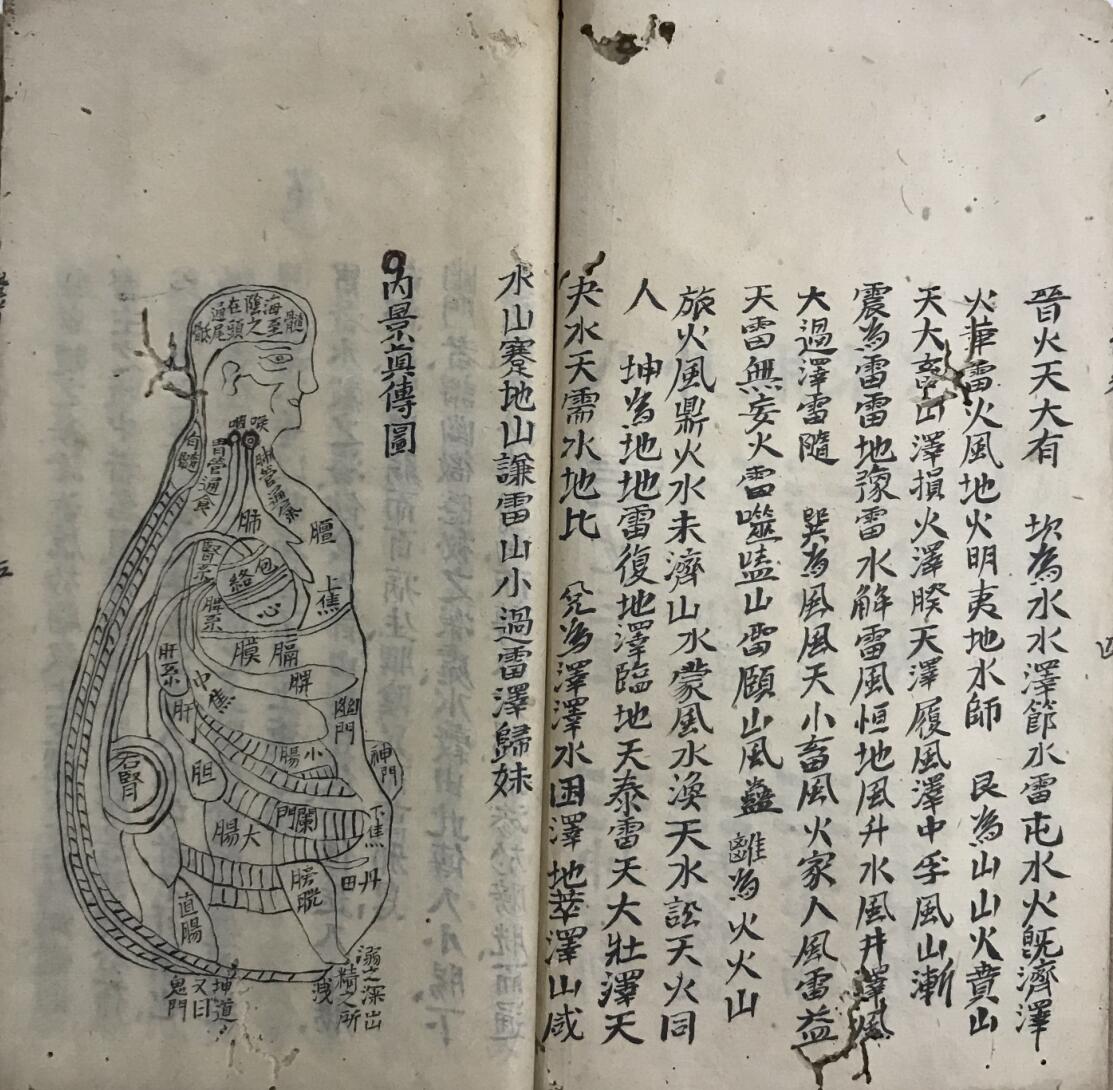 晉火天大有　坎為水水澤節水雷屯水火既濟澤
火革雷火風地火明夷地水師　艮為山山火賁山
天大畜山澤損火澤睽天澤履風澤中孚風山漸
震為雷雷地豫雷水解雷風恒地風升水風井澤風
大過澤雷隨　巽為風風天小畜風火家人風雷益
天雷無妄火雷噬嗑山雷頤山風蠱　離為火火山
旅火風鼎火水未濟山水蒙風水渙天水訟天火同
人　坤為地地雷復地澤臨地天泰雷天大壯澤天
夬水天需水地比　兌為澤澤水困澤地萃澤山咸
水山蹇地山謙雷山小過雷澤歸妹
內景眞傳圖
髓
海至
陰之
在頭
過尾
骶
喉
咽
肺管通
胃管通食
脊髓
肺
膻
上焦
腎系
包絡
心
脾系
膈膜
肝系
脾
中焦
肝
幽門
小腸
神門
右腎
胆
闌門
下焦
大腸
丹田
膀胱
直腸
溺之深出
精之所
洩
坤道
又曰
鬼門